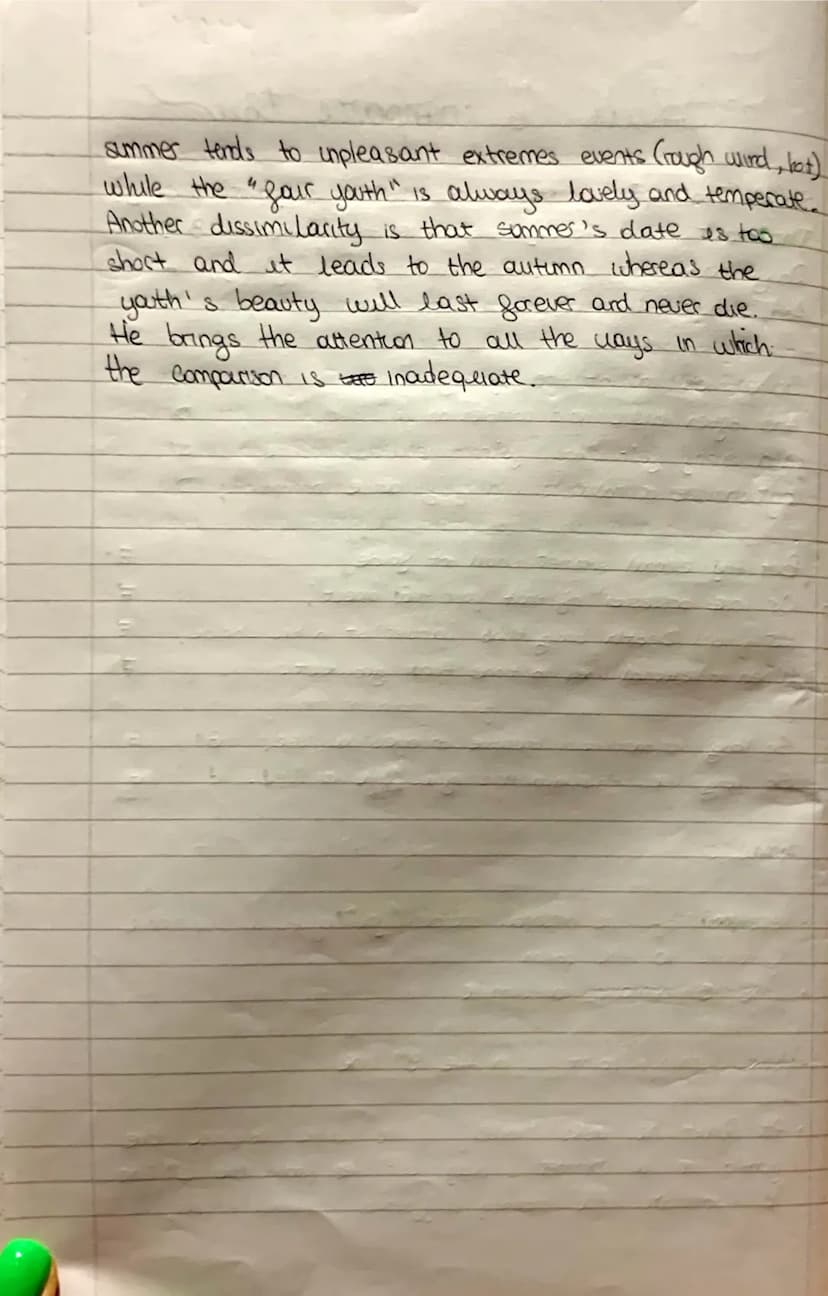 summer tends to unpleasant extremes events (rough wind, hot)
while the "fair youth" is always lovely and temperate.
Another dissimilarity is that summer's date is too
short and it leads to the autumn whereas the
youth's beauty will last forever and never die.
He brings the attention to all the ways in which
the comparison is inadequate.